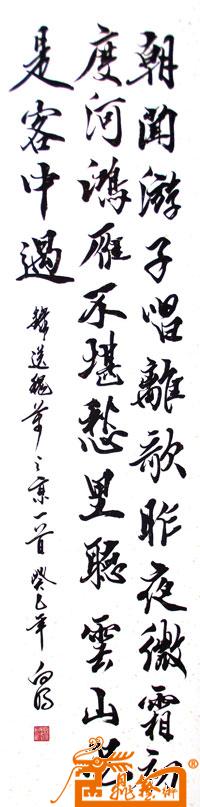 朝聞游子唱離歌昨夜微霜初
度河鴻雁不堪愁里聽雲山况
是客中過
錄送魏萬之京一首癸巳年